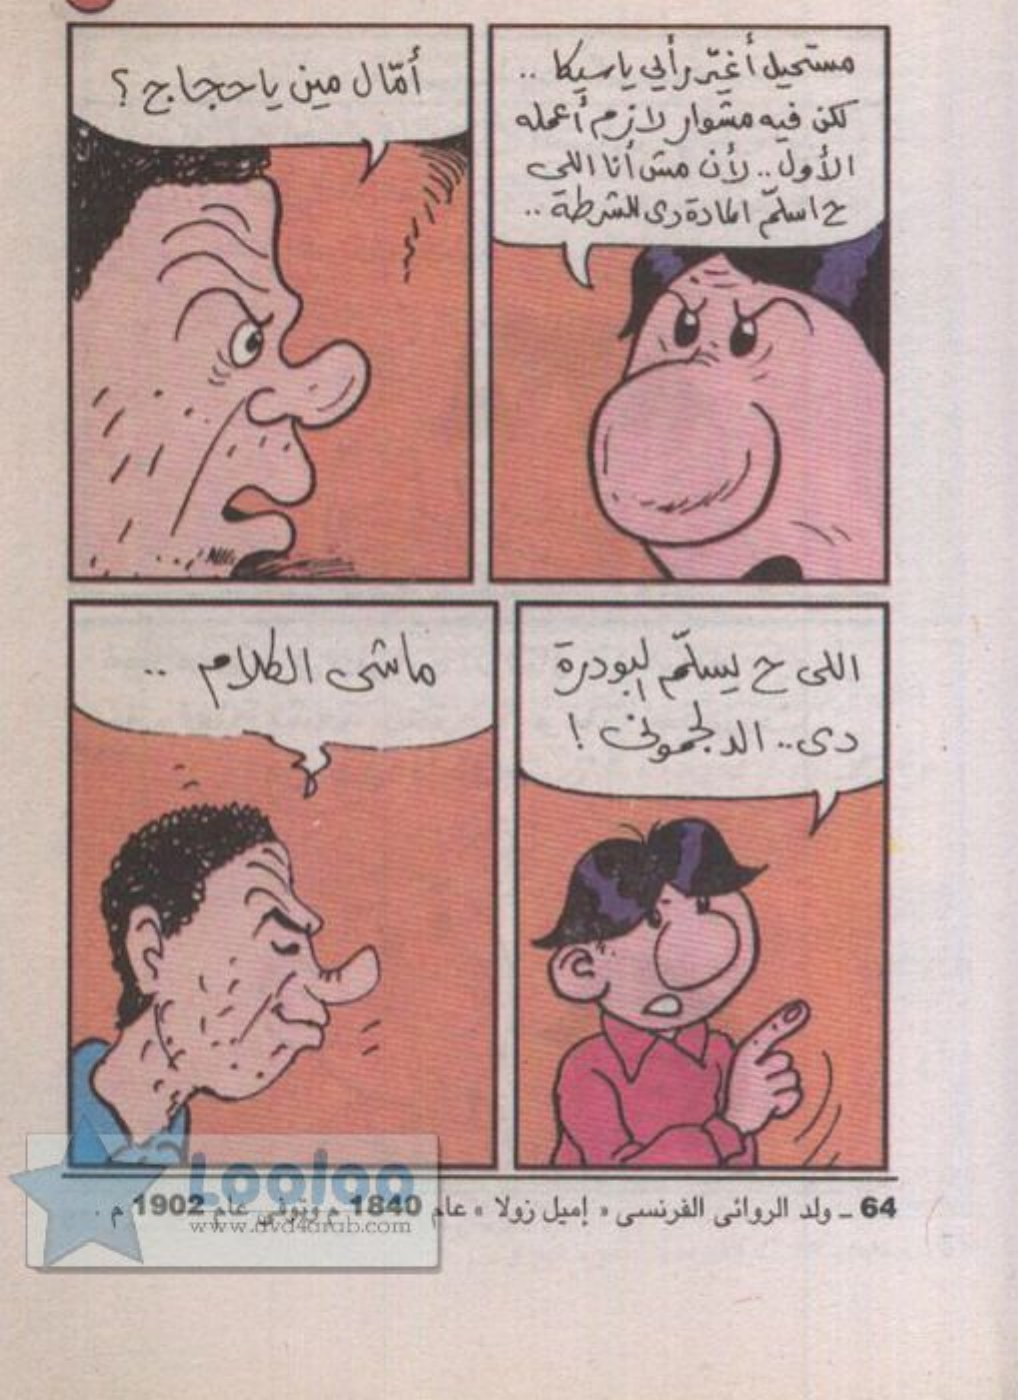 مستحيل أغيّر رأيي يا سيكا ..
لكن فيه مشوار لازم أعمله
الأول .. لأن مش أنا اللى
ح اسلّم المادة دى للشرطة ..
أمّال مين يا حجاج ؟
اللى ح يسلّم البودرة
دى .. الدلجمونى !
ماشى الكلام ..
64 ـ ولد الروائى الفرنسى « إميل زولا » عام 1840 م وتوفى عام 1902 م .
Looloo
www.dvd4arab.com